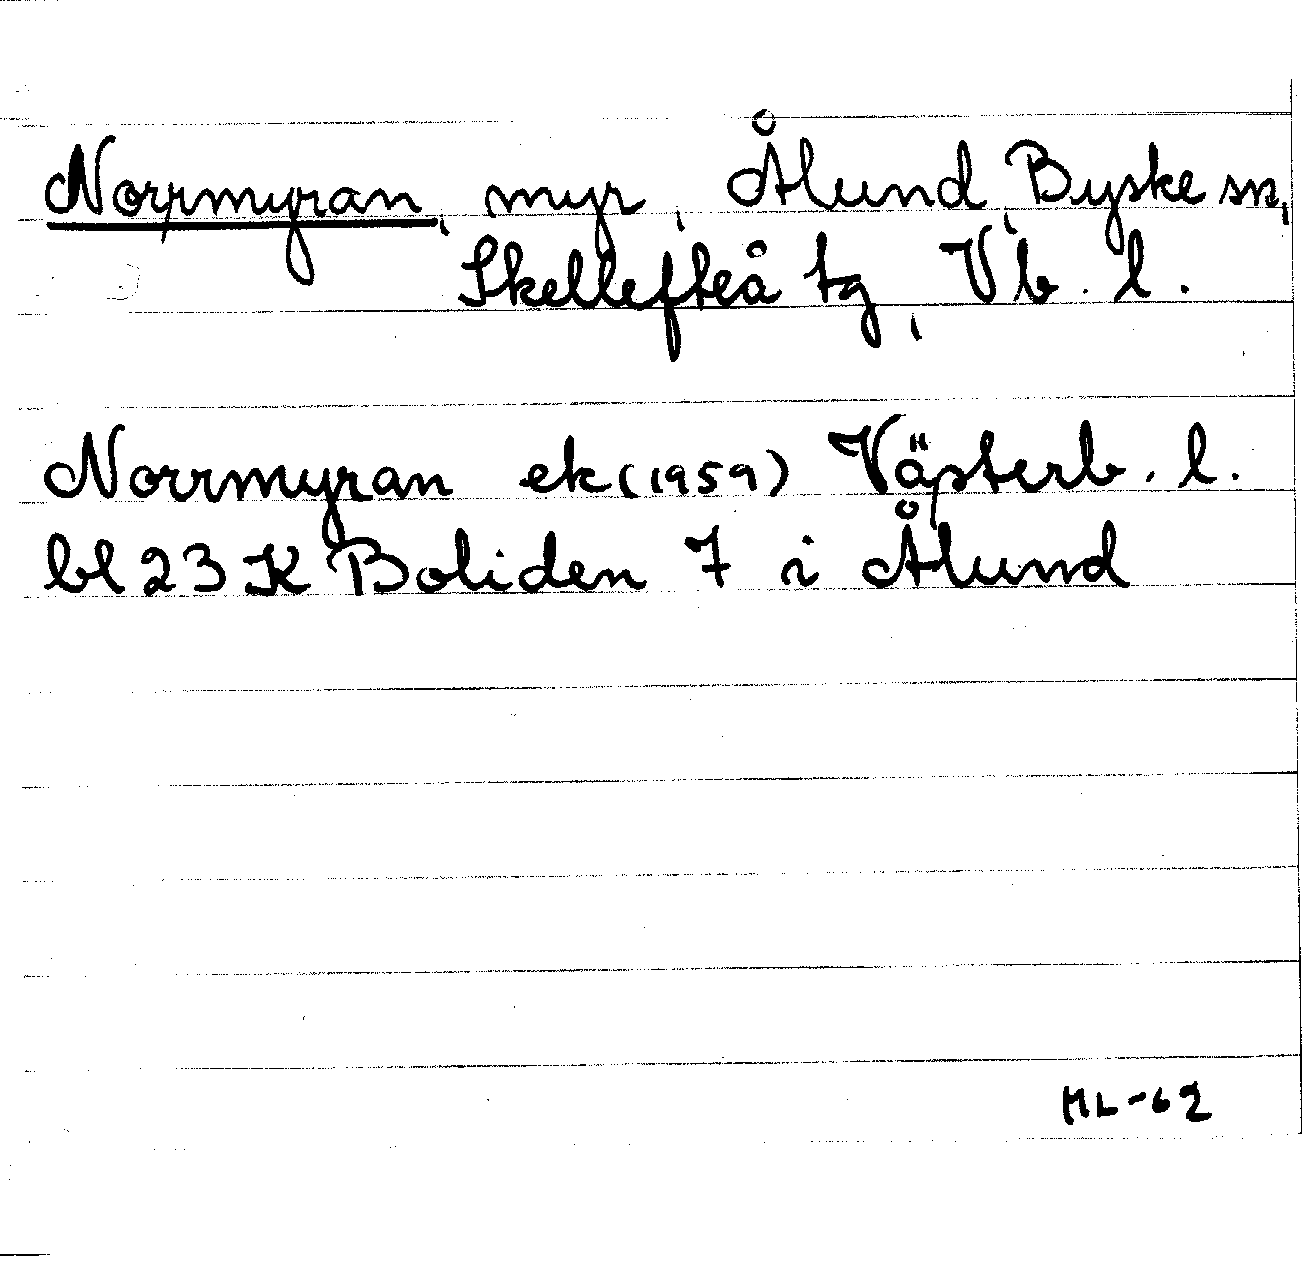 Norrmyran, myr, Ålund, Byske sn,
Skellefteå tg, Vb. l.
Norrmyran ek (1959) Västerb. l.
bl 23 K Boliden 7 i Ålund
ML-62